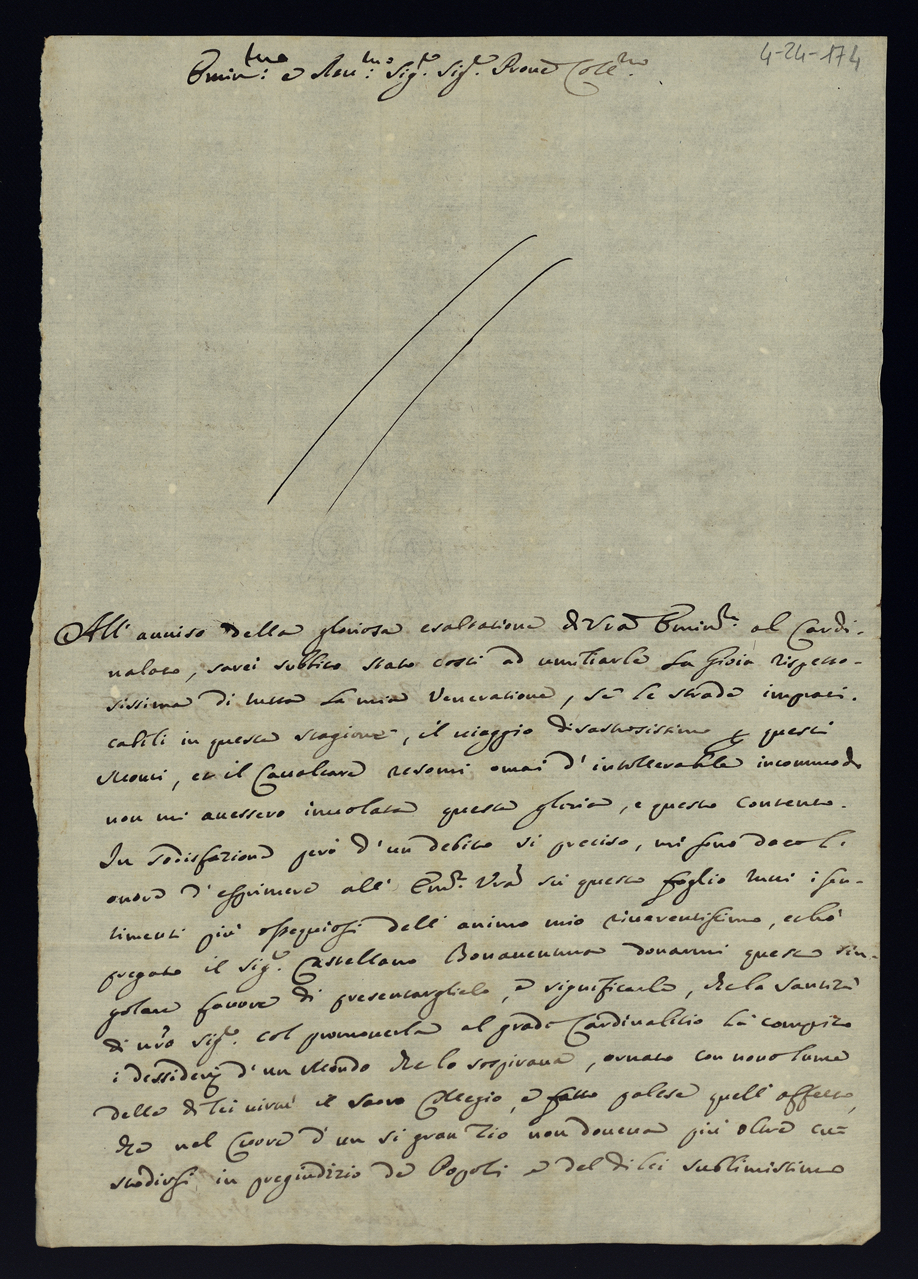 4-24-174
Emin.mo: e Reu.mo: Sig.r Sig.r Prone Col.mo
All' auuiso della gloriosa esaltatione di Vra Emin.za: al Cardi-
nalato, sarei subbito stato costì ad umiliarle la Gioia rispetto-
sissima di tutta la mia Veneratione, se le strade imprati-
cabili in questa stagione, il uiaggio disastrosissimo p questi
Monti, et il Caualcare resomi omai d'intollerabile incommodo
non mi auessero inuolata questa gloria, e questo contento.
In sodisfazione però d'un debito sì preciso, mi sono dato l'
onore d'esprimere all' Em.za Vra sù questo foglio tutti i sen-
timenti più ossequiosi dell' animo mio riuerentissimo, ed hò
pregato il Sig.r Castellano Bonauentura donarmi questo sin-
golare fauore di presentarglielo, e significarle, che la Santità
di nro Sig.re col promouerla al grado Cardinalitio hà compito
i dessiderij d'un Mondo che lo sospiraua, ornato con nouo lume
delle di lei uirtù il Sacro Collegio, e fatto palese quell' affetto,
che nel Cuore d'un sì gran Zio non doueua più oltre cu-
stodirsi in pregiudizio de Popoli e del di lei sublimissimo